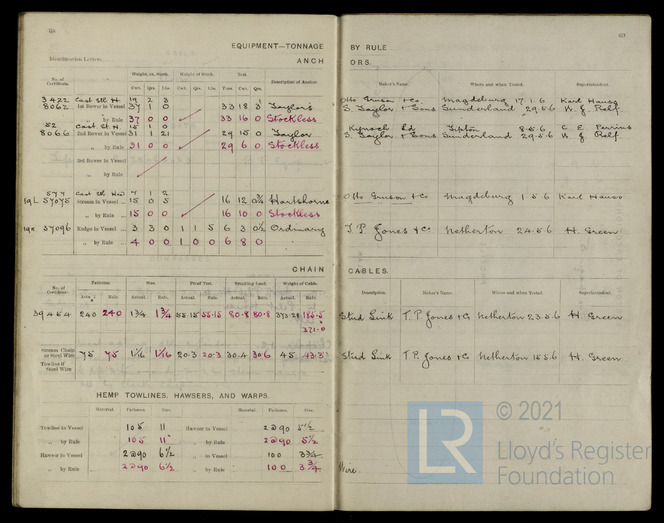 68
EQUIPMENT—TONNAGE
Identification Letters
ANCH
No. of Certificate.
Weight, ex. Stock.
Weight of Stock.
Test.
Description of Anchor.
Cwt. Qrs. Lbs. Cwt. Qrs. Lbs. Tons. Cwt. Qrs.
3422 Cast Stl H. 19 2 3
8062 1st Bower in Vessel 37 1 0 33 18 3 Taylor's
„ by Rule 37 0 0 33 16 0 Stockless
52 Cast St. H. 15 1 0
8066 2nd Bower in Vessel 31 1 21 29 15 0 Taylor
„ by Rule 31 0 0 29 6 0 Stockless
3rd Bower in Vessel
„ by Rule
577 Cast Stl Hd 7 1 2
Stream in Vessel 15 0 5 16 12 0¾ Hartshorne
„ by Rule 15 0 0 16 10 0 Stockless
37096 Kedge in Vessel 3 3 0 1 1 5 6 3 0½ Ordinary
„ by Rule 4 0 0 1 0 0 6 8 0
CHAIN
No. of Certificate.
Fathoms. Size. Proof Test. Breaking Load. Weight of Cable.
Rule. Actual. Rule. Actual. Rule. Actual. Rule. Actual. Rule.
39454 240 240 1¾ 1¾ 55.15 55.15 80.8 80.8
371.0
Stream Chain or Steel Wire 75 75 1 1/16 1 1/16 20.3 20.3 30.4 30.6 45 43.3
Towline if Steel Wire
HEMP TOWLINES, HAWSERS, AND WARPS.
Material. Fathoms. Size. Material. Fathoms. Size.
Towlines in Vessel 105 11 Hawser in Vessel 2@90 5½
„ by Rule 105 11 „ by Rule 2@90 5½
Hawser in Vessel 2@90 6½ „ in Vessel 100 3¾
„ by Rule 2@90 6½ „ by Rule 100 3¾
69
BY RULE
ORS.
Maker's Name. Where and when Tested. Superintendent.
Otto Gruson & Co. Magdeburg 17.1.6 Karl Hauss
S. Taylor & Sons Sunderland 29.5.6 W. G. Relf
Kynoch Ld Tipton 8.5.6 C. E. Perrins
S. Taylor & Sons Sunderland 29.5.6 W. G. Relf.
Otto Gruson & Co Magdeburg 1.5.6 Karl Hauss
T. P. Jones & Co. Netherton 24.5.6 H. Green
CABLES.
Description. Maker's Name. Where and when Tested. Superintendent.
Stud Link T. P. Jones & Co Netherton 23.5.6 H. Green
Stud Link T. P. Jones & Co Netherton 15.5.6 H. Green
Wire
LR
© 2021
Lloyd's Register
Foundation